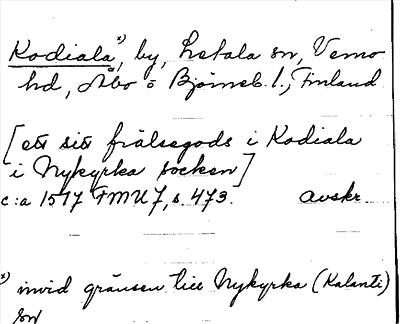 Kodiala x), by, Letala sn, Vemo
hd, Åbo o Björneb. l., Finland
[ett sitt frälsegods i Kodiala
i Nykyrka socken]
c:a 1517 FMU 7, s. 473. avskr.
x) invid gränsen till Nykyrka (Kalanti)
sn